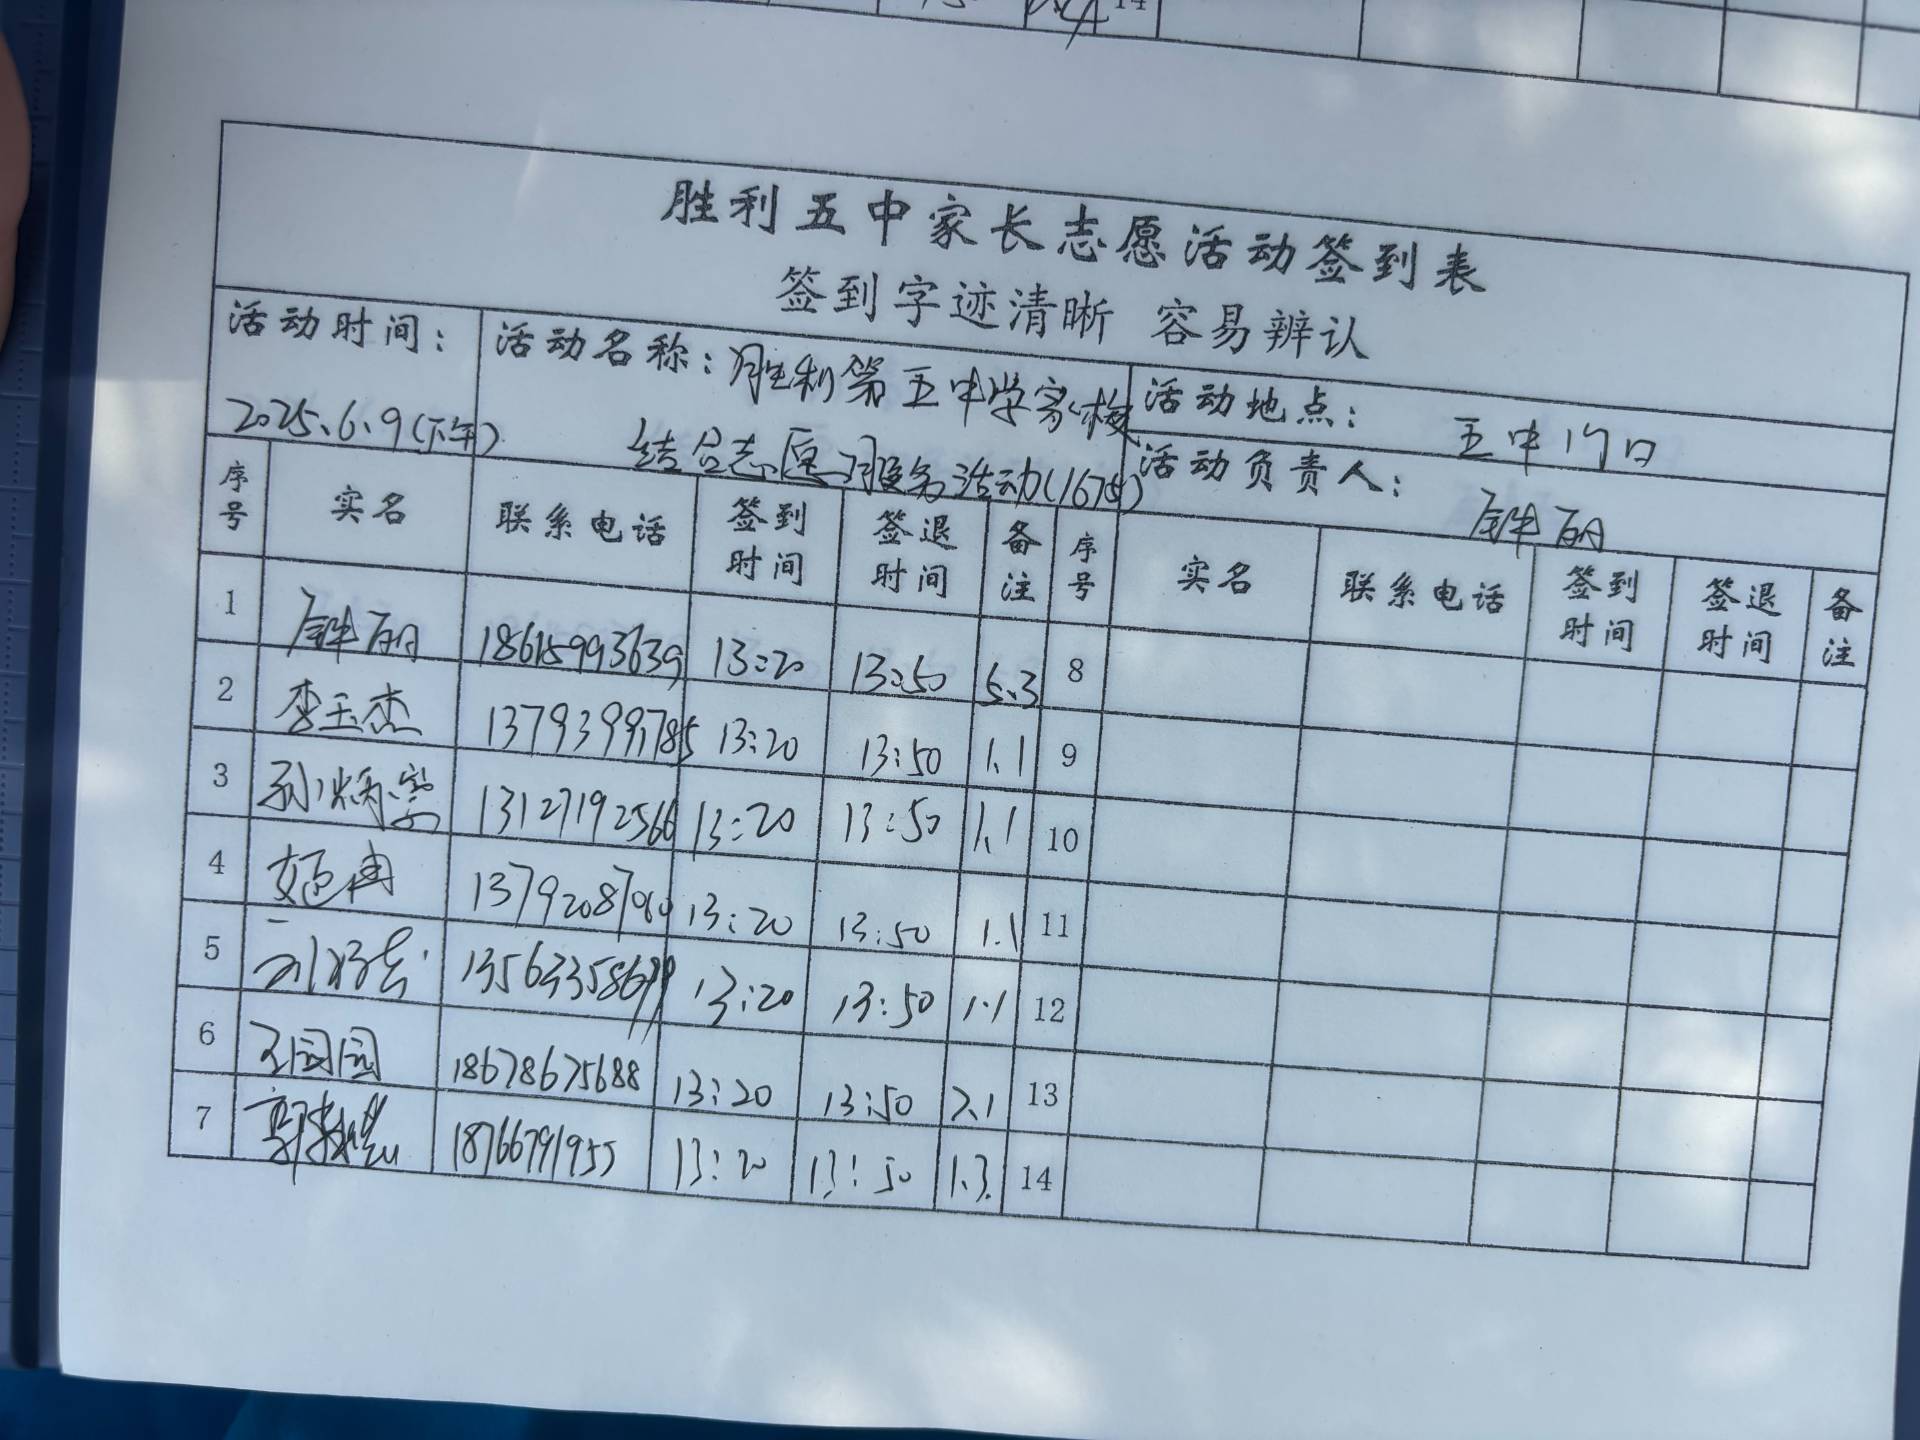 14
胜利五中家长志愿活动签到表
签到字迹清晰 容易辨认
活动时间： 活动名称：胜利第五中学家校 活动地点： 五中门口
2025.6.9(下午) 结合志愿服务活动(167 活动负责人： 丽
序号 实名 联系电话 签到时间 签退时间 备注 序号 实名 联系电话 签到时间 签退时间 备注
1 丽 18615993639 13:20 13:50 5.3 8
2 李玉杰 13793999785 13:20 13:50 1.1 9
3 孙炳学 13127192566 13:20 13:50 1.1 10
4 13:20 13:50 1.1 11
5 刘 13:20 13:50 1.1 12
6 王园园 18678675688 13:20 13:50 2.1 13
7 郭 18766791955 13:20 13:50 1.3 14